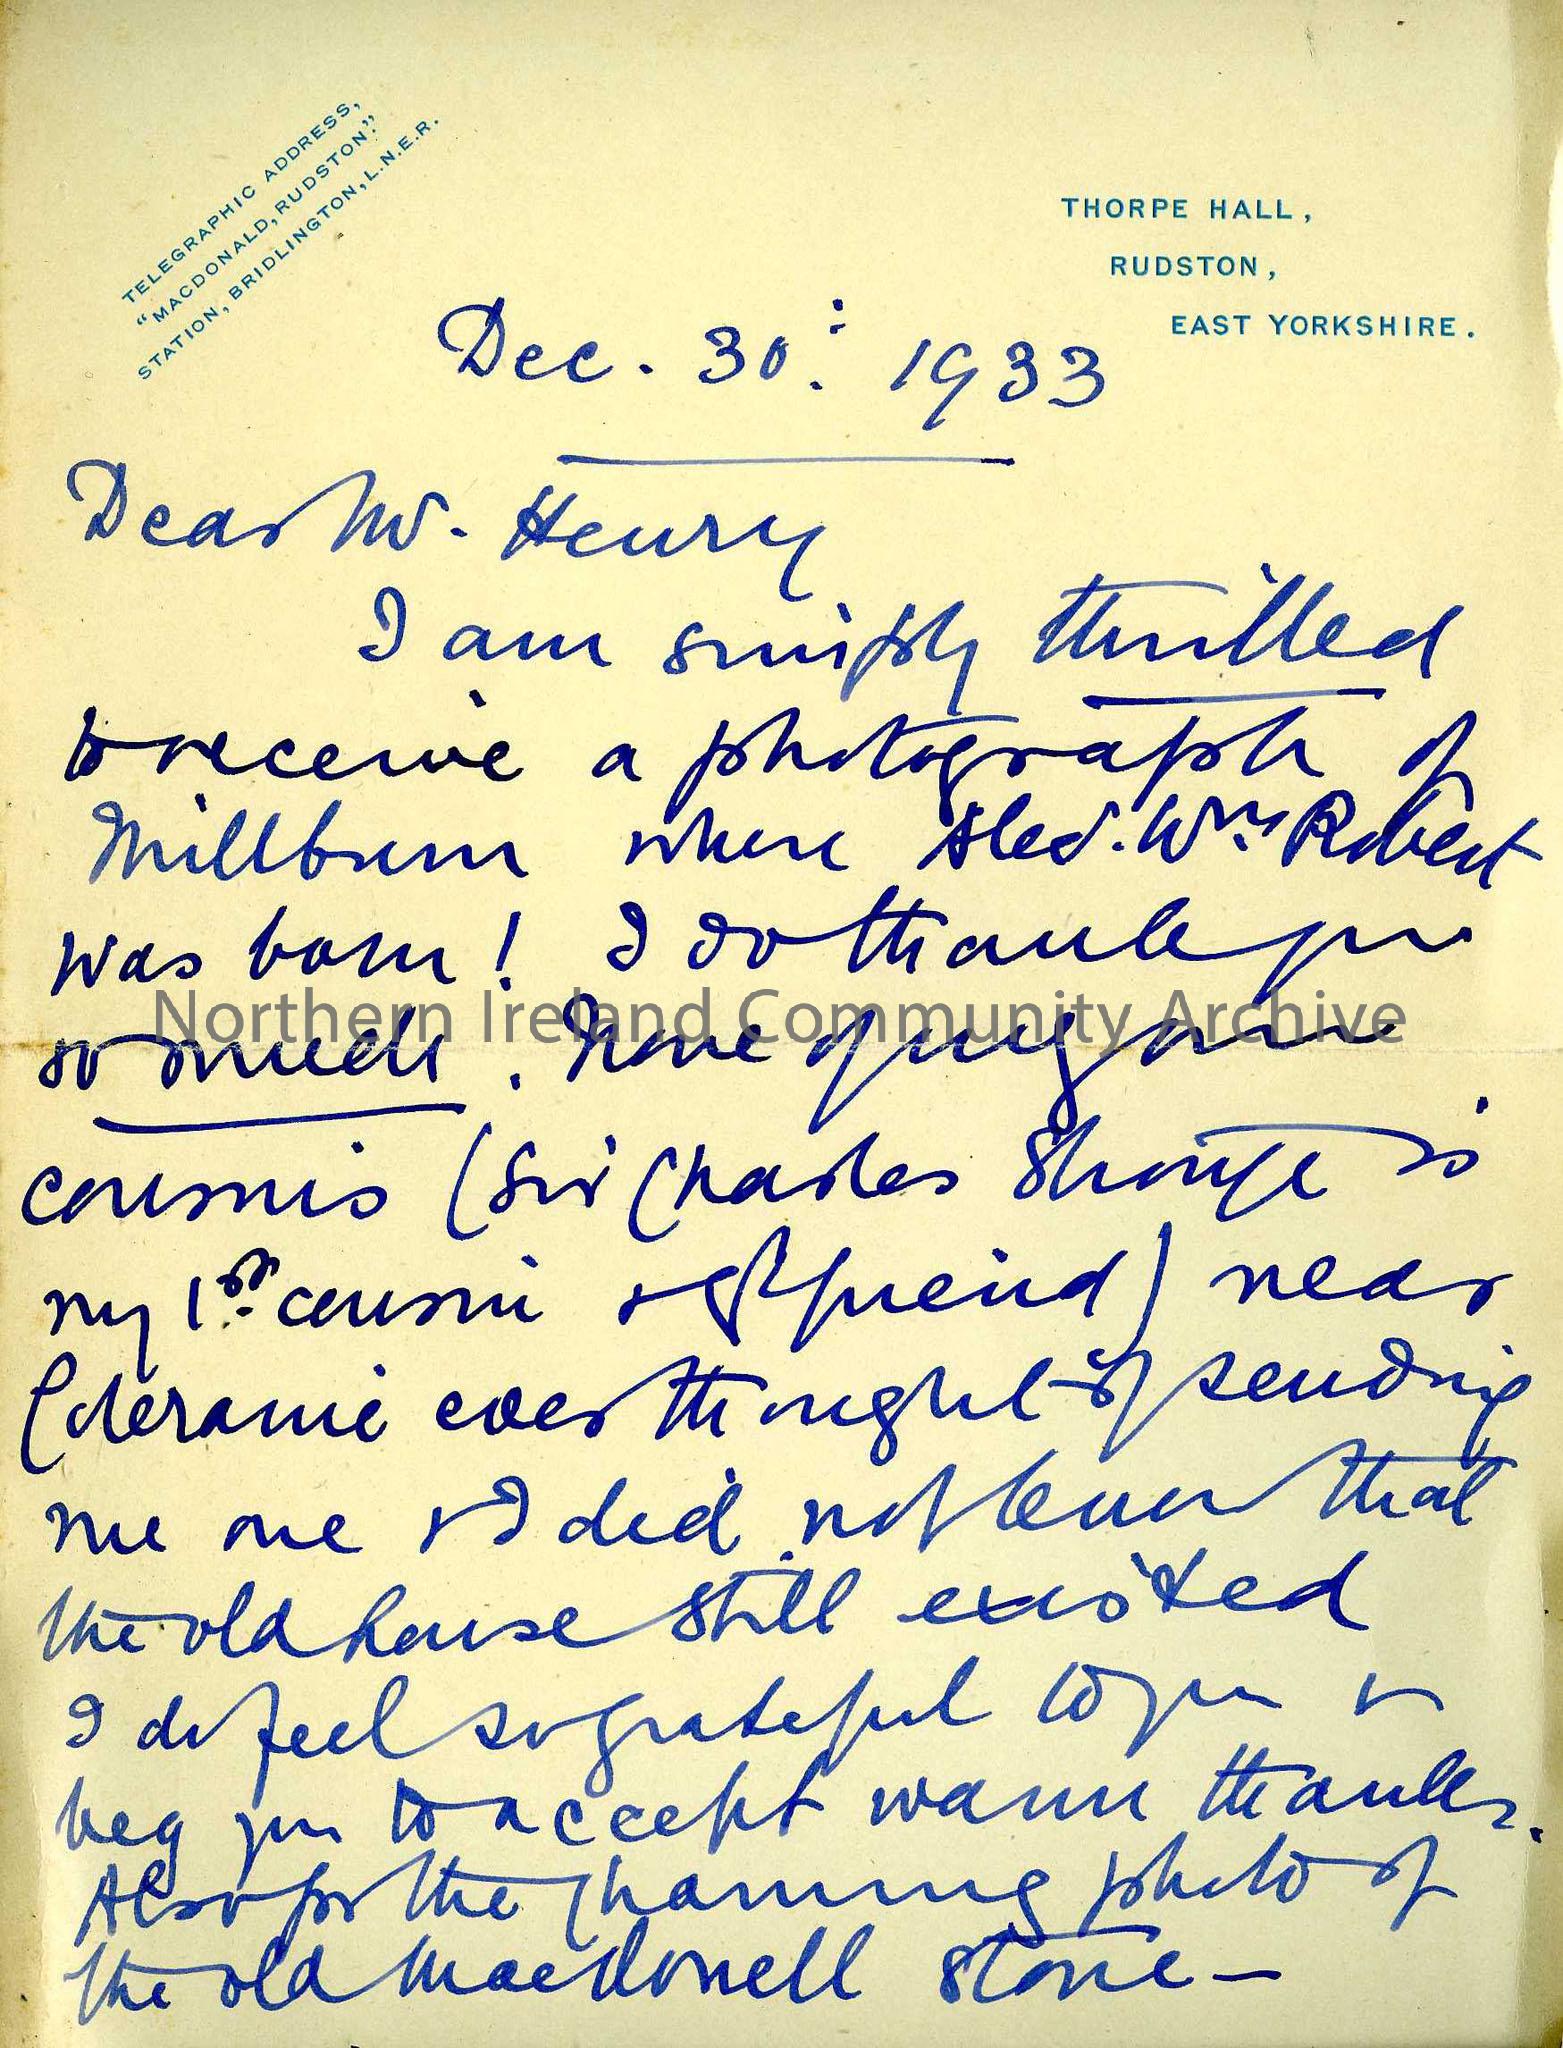 TELEGRAPHIC ADDRESS,
"MACDONALD, RUDSTON."
STATION, BRIDLINGTON, L.N.E.R.
THORPE HALL,
RUDSTON,
EAST YORKSHIRE.
Dec. 30: 1933
Dear Mr. Henry
I am simply thrilled
to receive a photograph of
Millburn where Alexr. Wm. Robert
was born! I do thank you
so much. None of my own
cousins (Sir Charles Stronge is
my 1st cousin & gt friend) near
Coleraine ever thought of sending
me one & I did not know that
the old house still existed
I do feel so grateful to you &
beg you to accept warm thanks.
Also for the charming photo of
the old MacDonell stone —
Northern Ireland Community Archive